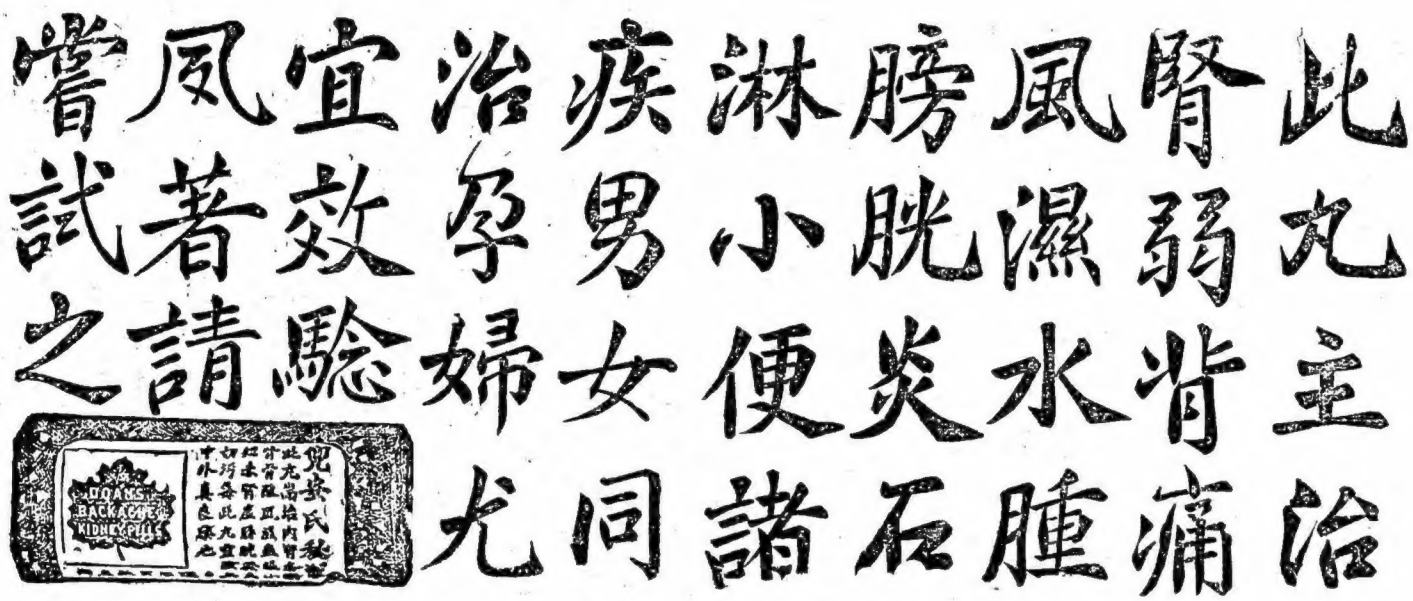 此丸主治
腎弱背痛
風濕水腫
膀胱炎石
淋小便諸
疾男女同
治孕婦尤
宜效驗
夙著請
嘗試之
DOAN'S
BACKACHE
KIDNEY PILLS
兜安氏秘